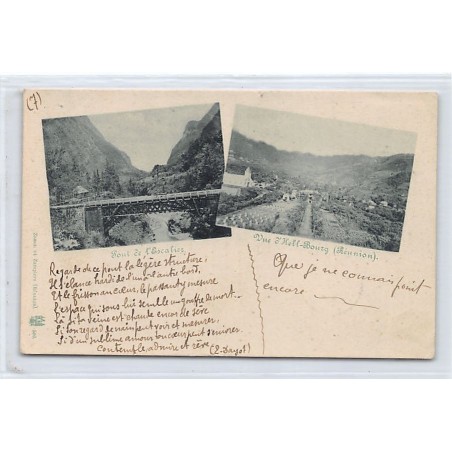 (7)
Pont de l'Escalier
Vue d'Hell-Bourg (Réunion).
Regarde de ce pont la légère structure;
Il s'élance hardi de l'un à l'autre bord,
Et le frisson au cœur, le passant y mesure
L'espace qui sous lui semble un gouffre de mort.
Là si ta veine est chaude encor de sève
Si ton regard de main peut voir et mesurer,
Si d'un sublime amour ton cœur peut s'enivrer
Contemple admire et rêve (E. Dayot)
Que je ne connais point
encore